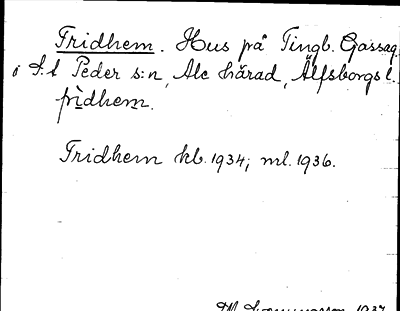 Fridhem. Hus på Tingb. Gassag.
i S:t Peder s:n, Ale härad, Älfsborgs l.
frìdhem.
Fridhem kb. 1934; ml. 1936.
1937